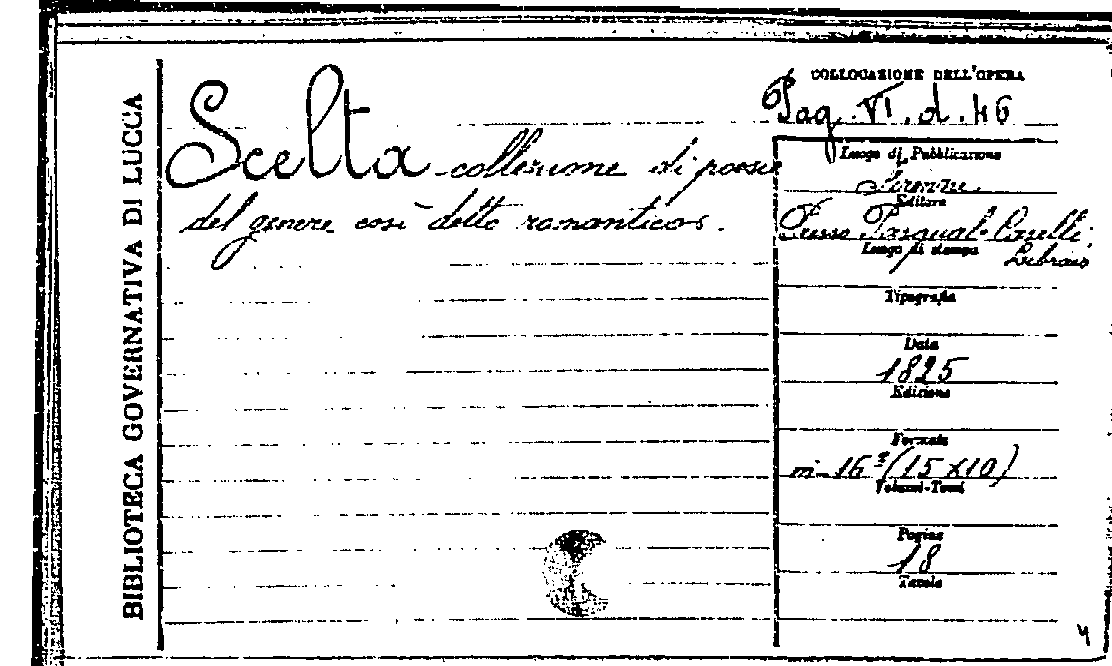 BIBLIOTECA GOVERNATIVA DI LUCCA
Scelta collezione di poesie
del genere così detto romanticos.
COLLOCAZIONE DELL'OPERA
Pag. VI. d. 46
Luogo di Pubblicazione
Firenze
Editore
Presso Pasquale
Libraio
Luogo di stampa
Tipografia
Data
1825
Edizione
Formato
in-16º (15 x 10)
Volumi-Tomi
Pagine
18
Tavole
4